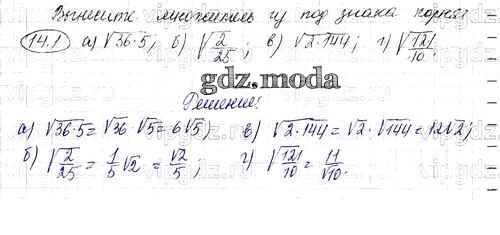 Вынесите множитель из под знака корня
14.1 а) √36·5; б) √2/25; в) √2·144; г) √121/10.
gdz.moda
Решение:
а) √36·5 = √36 · √5 = 6√5; в) √2·144 = √2 · √144 = 12√2;
б) √2/25 = 1/5 √2 = √2/5; г) √121/10 = 11/√10.